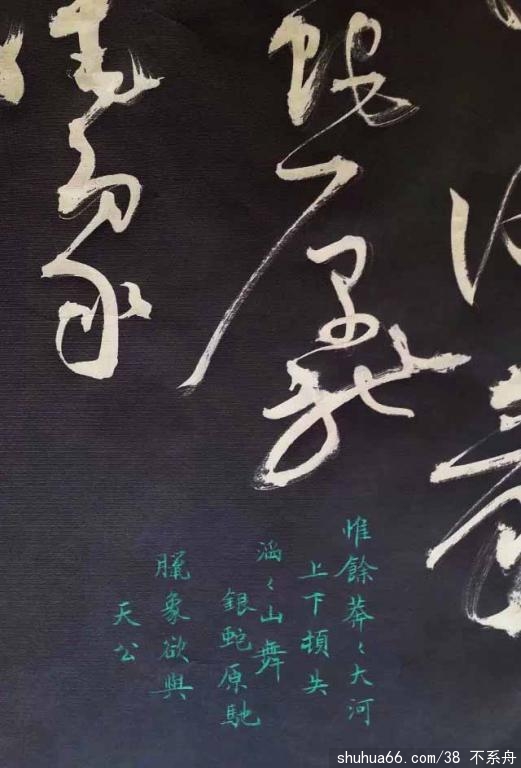 蛇原馳
象
惟餘莽〻大河
上下頓失
滔〻山舞
銀蛇原馳
臘象欲與
天公
shuhua66.com/38 不系舟